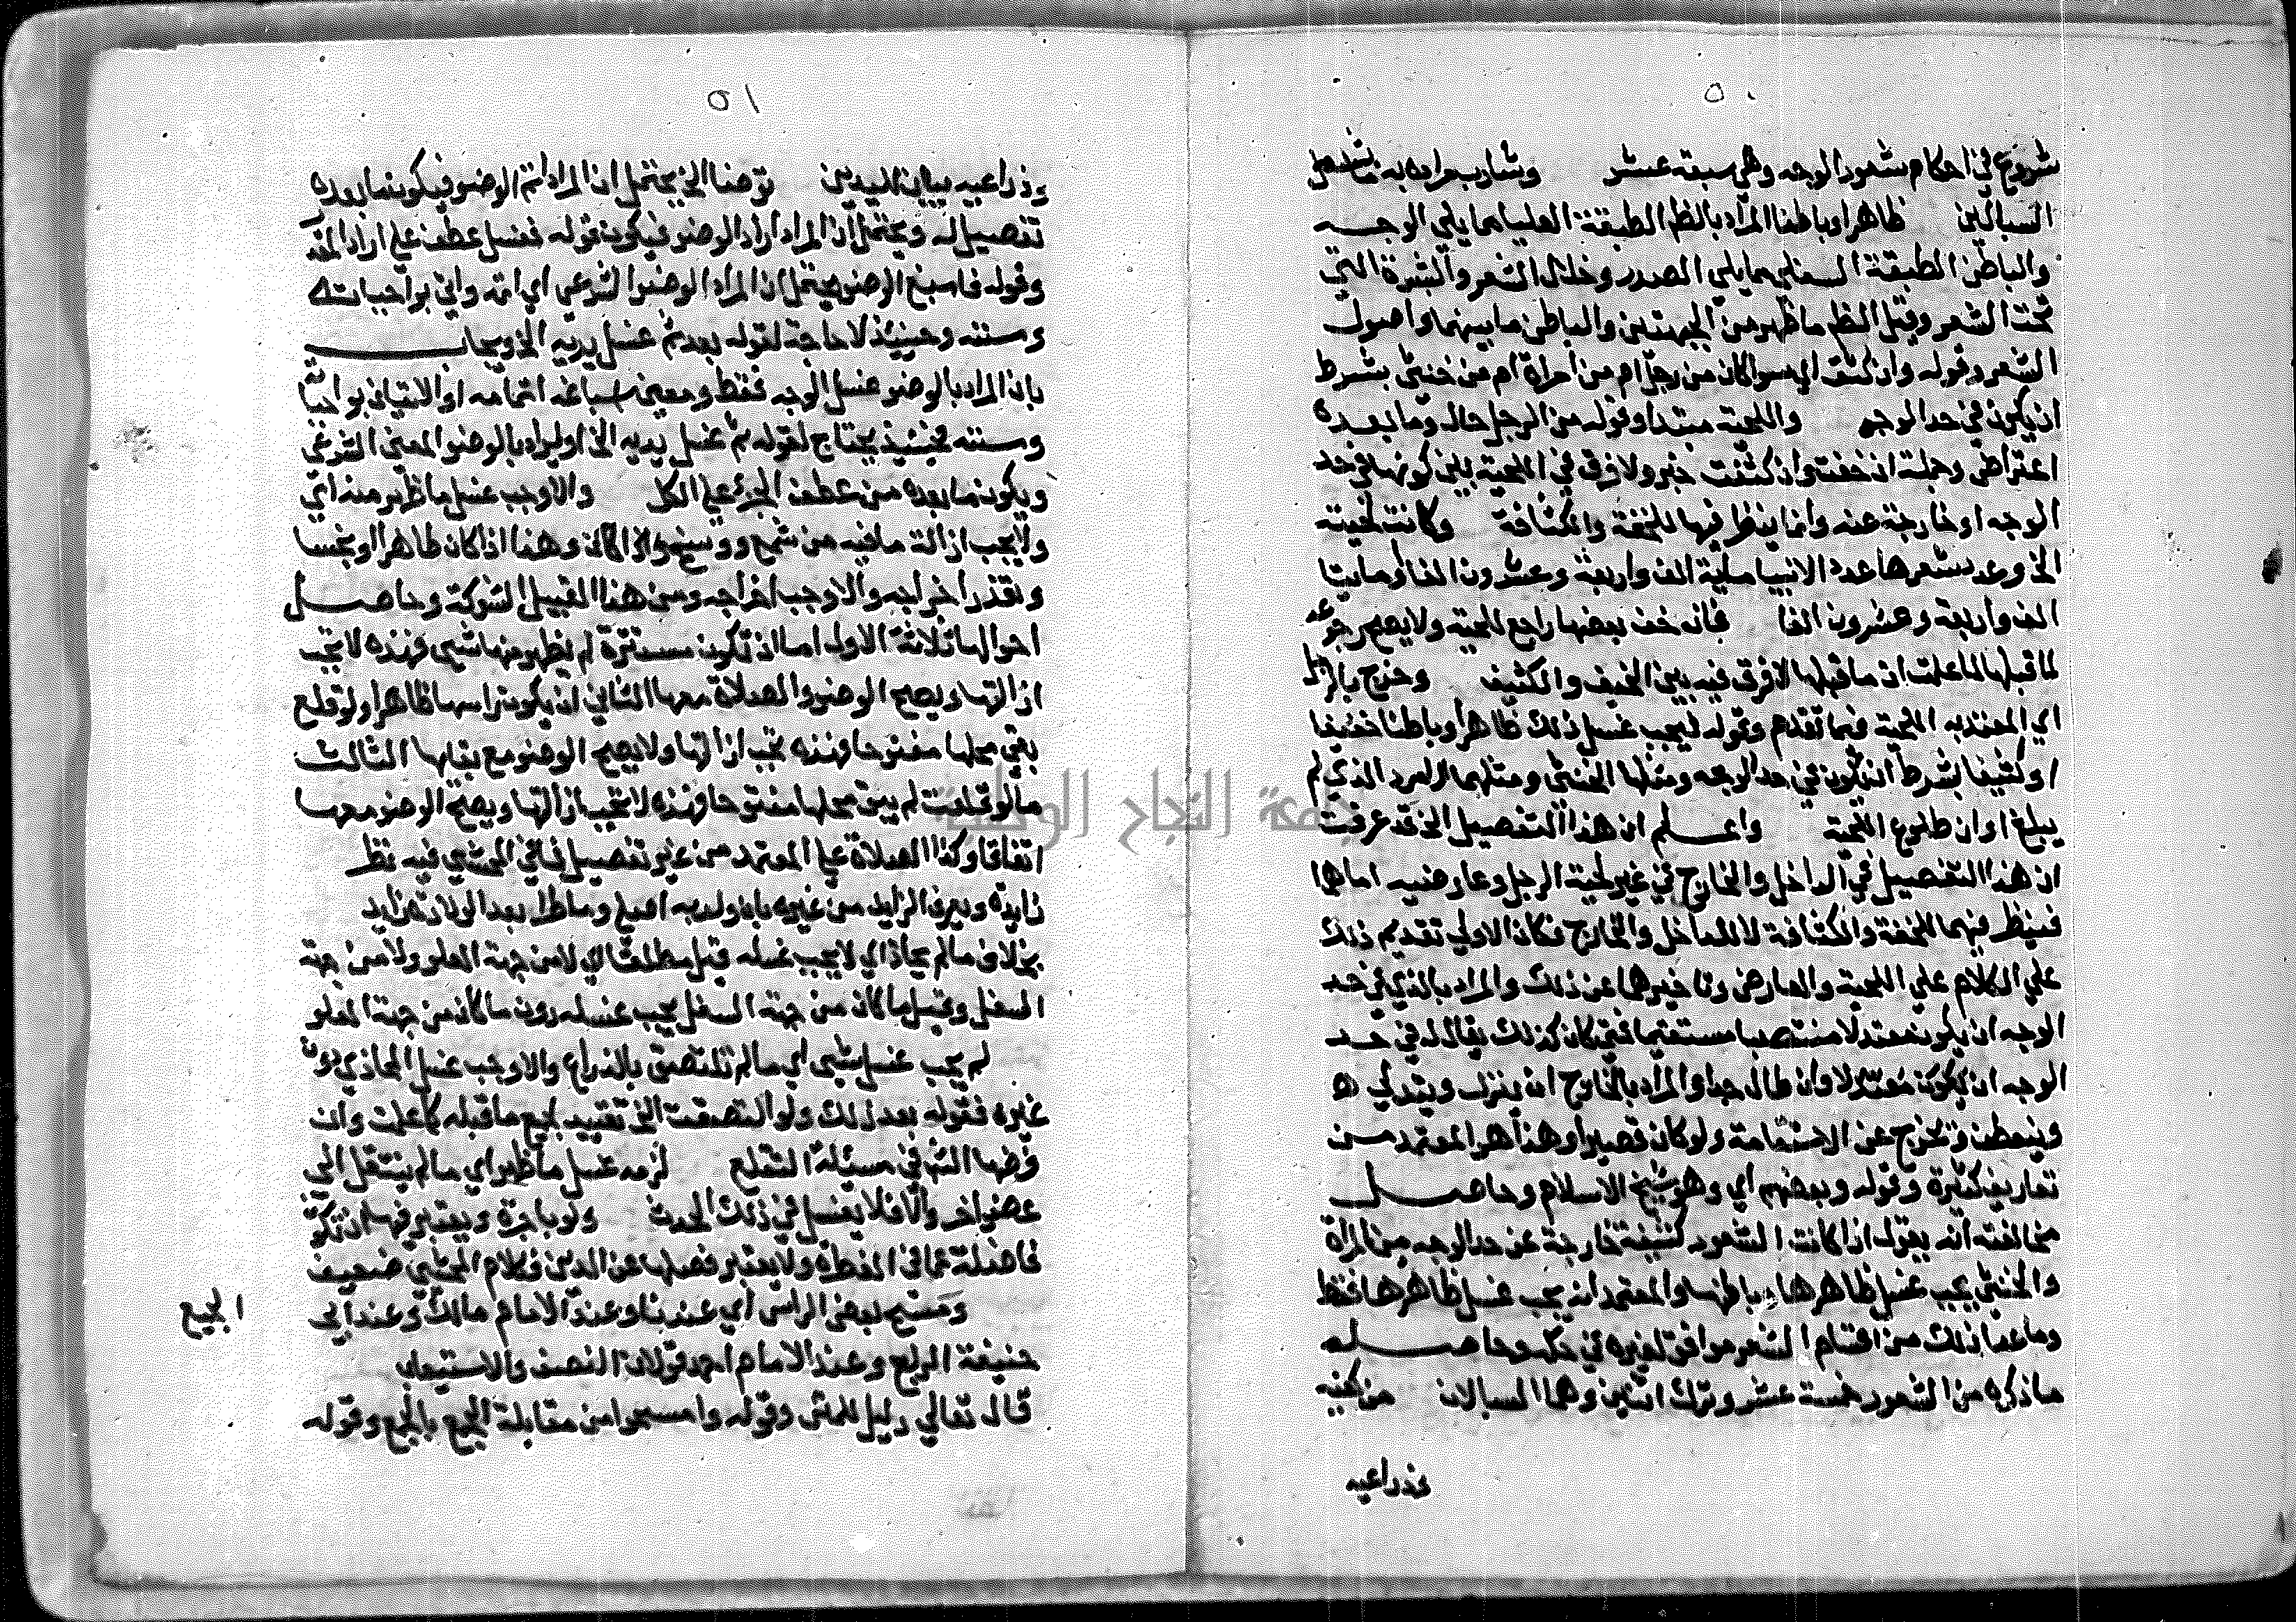 ٥٠
شروع في احكام شعور الوجه وهي سبعة عشر وشارب مراده به ما يشمل
السبالين ظاهرا وباطنا المراد بالظ الطبقة العليا مما يلي الوجه
والباطن الطبقة السفلي مما يلي الصدر وخلال الشعر والبشرة التي
تحت الشعر وقيل الظ ما ظهر من الجهتين والباطن ما بينهما واصول
الشعر وقوله وان كثف اي سواكان من رجل ام من امراة ام من خنثي بشرط
ان يكون في حد الوجه واللحية مبتدا وقوله من الرجل حال وما بعده
اعتراض وجملة ان خفت وان كثفت خبر ولا فرق في اللحية بين كونها في حد
الوجه او خارجة عنه وانما ينظر فيها للخفة والكثافة وكانت لحيته
الخ وعدد شعرها عدد الانبيا ماية الف واربعة وعشرون الفا او مايتا
الف واربعة وعشرون الفا فان خف بعضها راجع للحية ولا يصح رجوعه
لما قبلها لما علمت ان ما قبلها لا فرق فيه بين الخفيف والكثيف وخرج بالرجل
اي المعتد به اللحية فيما تقدم وقوله فيجب غسل ذلك ظاهرا وباطنا خفيفا
او كثيفا بشرط ان يكون في حد الوجه ومثلها الخنثى ومثلهما الامرد الذي لم
يبلغ اوان طلوع اللحية واعلم ان هذا التفصيل الخ قد عرفت
ان هذا التفصيل في الداخل والخارج في غير لحية الرجل وعارضيه اما هما
فينظر فيهما للخفة والكثافة لا للداخل والخارج فكان الاولي تقديم ذلك
علي الكلام علي اللحية والعارض وتاخيرها عن ذلك والمراد بالذي في حد
الوجه ان يكون معتدلا منتصبا مستقيما فمتي كان كذلك يقال له في حد
الوجه ان يكون معتدلا وان طال جدا والمراد بالخارج ان ينزل ويتدلي ه
وينعطف ويخرج عن الاستقامة ولو كان قصيرا وهذا هو المعتمد من
تعاريف كثيرة وقوله وبعضهم اي وهو شيخ الاسلام وحاصل
مخالفته انه يقول اذا كانت الشعور كثيفة خارجة عن حد الوجه من المراة
والخنثى يجب غسل ظاهرها وباطنها والمعتمد انه يجب غسل ظاهرها فقط
وما عدا ذلك من اقسام الشعر موافق لغيره في حكمه وحاصله
ما ذكره من الشعور خمسة عشر وترك اثنين وهما السبالان من كفيه
وذراعيه
٥١
وذراعيه بيان لليدين توضا الخ يحتمل ان المراد اتم الوضو فيكون ما بعده
تفصيل له ويحتمل ان المراد اراد الوضو فيكون قوله فغسل عطف علي اراد المقدر
وقوله فاسبغ الوضو يحتمل ان المراد الوضوا الشرعي اي اتمه واتي بواجباته
وسننه وحينئذ لا حاجة لقوله بعد ثم غسل يديه الخ ويجاب
بان المراد بالوضو غسل الوجه فقط ومعني اسباغه اتمامه او الاتيان بواجباته
وسننه فحينئذ يحتاج لقوله ثم غسل يديه الخ او يراد بالوضو المعني الشرعي
ويكون ما بعده من عطف الجزء علي الكل والا وجب غسل ما ظهر منه اي
ولا يجب ازالة ما فيه من شمع ووسخ وهذا اذا كان طاهرا او نجسا
وتعذر اخراجه والا وجب اخراجه ومن هذا القبيل الشوكة وحاصل
احوالها ثلاثة الاول اما ان تكون مستترة لم يظهر منها شي فهذه لا يجب
ازالتها ويصح الوضو والصلاة معها الثاني ان يكون راسها ظاهرا ولو قلع
بقي محلها مفتوحا وهذه يجب ازالتها ولا يصح الوضو مع بقايها الثالث
ما لو قلعت لم يبق محلها مفتوحا وهذه لا يجب ازالتها ويصح الوضو معها
اتفاقا وكذا الصلاة علي المعتمد من غير تفصيل فما في المحشي فيه نظر
زايدة ويعرف الزايد من غيره بان ولد به اصلي وما طرا بعد الولادة زايد
بخلاف ما لم يحاذ اي لا يجب غسله قيل مطلقا اي لا من جهة العلو ولا من جهة
السفل وقيل ما كان من جهة السفل يجب غسله دون ما كان من جهة العلو
لم يجب غسل شي اي ما لم تلتصق بالذراع والا وجب غسل المحاذي دون
غيره فقوله بعد ذلك ولو التصقت الخ تقييد لجميع ما قبله كما علمت وان
فرضها الش في مسئلة التقلع لزمه غسل ما ظهر اي ما لم ينتقل الي
عضو اخر والا فلا يغسل في ذلك الحدث ولو باجرة ويعتبر فيها ان تكون
فاضلة عما في الفطره ولا يعتبر فضلها عن الدين فكلام المحشي ضعيف
ومسح بعض الراس اي عندنا وعند الامام مالك وعند ابي
الجميع
حنيفة الربع وعند الامام احمد قولان النصف والاستيعاب
قال تعالي دليل للمتن وقوله وامسحوا من مقابلة الجمع بالجمع وقوله
جامعة النجاح الوطنية